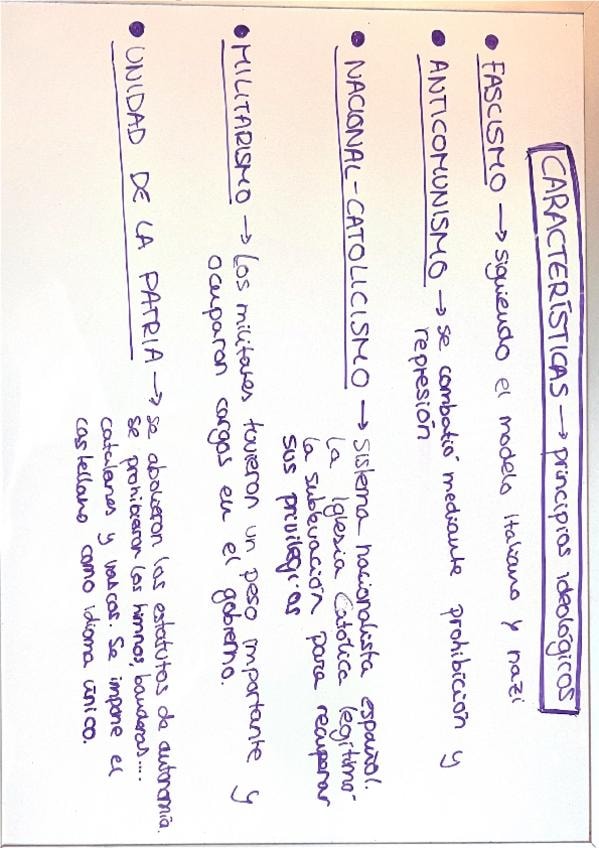 CARACTERÍSTICAS → principios ideológicos
• FASCISMO → siguiendo el modelo Italiano y nazi
• ANTICOMUNISMO → se combatió mediante prohibición y
represión
• NACIONAL-CATOLICISMO → sistema nacionalista español.
La Iglesia Católica legitimó
la sublevación para recuperar
sus privilegios
• MILITARISMO → Los militares tuvieron un peso importante y
ocuparon cargos en el gobierno.
• UNIDAD DE LA PATRIA → se abolieron los estatutos de autonomía.
se prohibieron los himnos, banderas....
catalanes y vascos. Se impone el
castellano como idioma único.